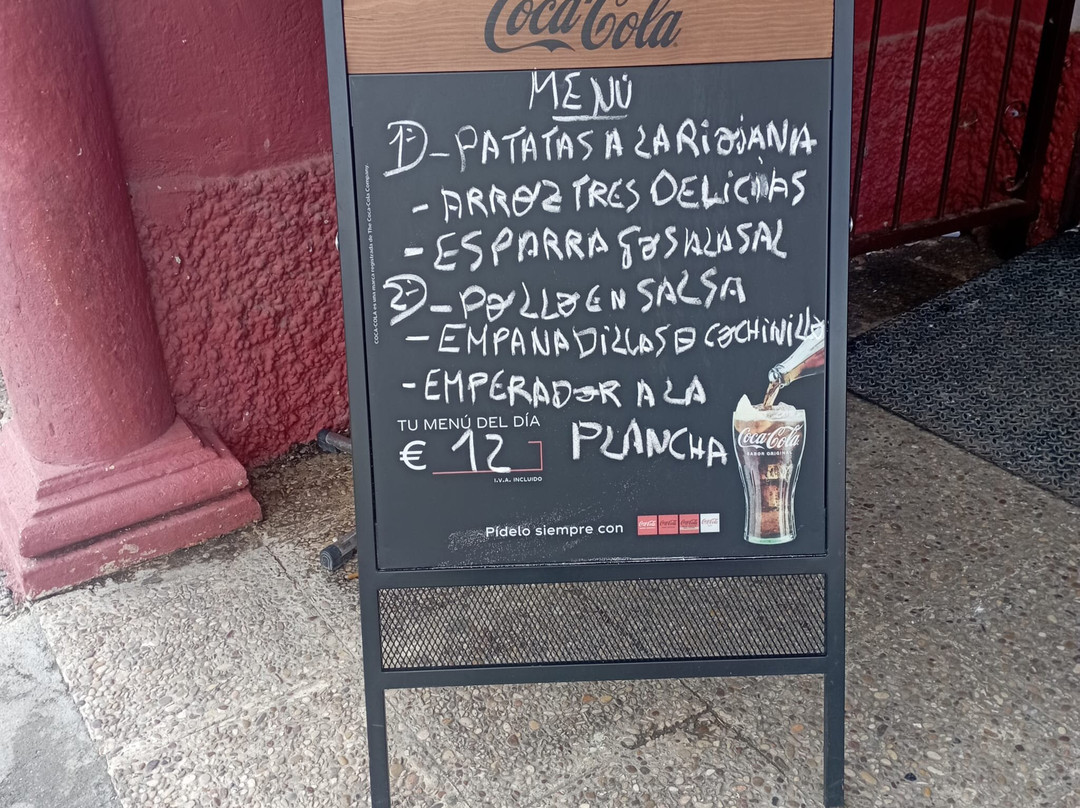 Coca-Cola
MENÚ
1º- PATATAS A LA RIOJANA
- ARROZ TRES DELICIAS
- ESPARRAGOS A LA SAL
2º- POLLO EN SALSA
- EMPANADILLAS D COCHINILLO
- EMPERADOR A LA
PLANCHA
TU MENÚ DEL DÍA
€ 12
I.V.A. INCLUIDO
Pídelo siempre con
Coca-Cola
SABOR ORIGINAL
COCA-COLA es una marca registrada de The Coca-Cola Company.